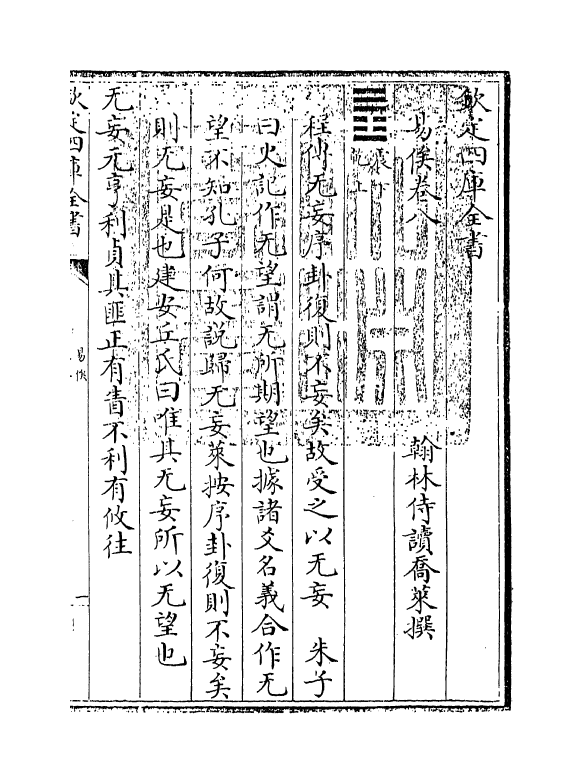 欽定四庫全書
易俟卷八
翰林侍讀喬萊撰
䷘震下乾上
程傳无妄序卦復則不妄矣故受之以无妄　朱子
曰史記作无望謂无所期望也據諸爻名義合作无
望不知孔子何故說歸无妄萊按序卦復則不妄矣
則无妄是也建安丘氏曰唯其无妄所以无望也
无妄元亨利貞其匪正有眚不利有攸往
欽定四庫全書
易俟
一